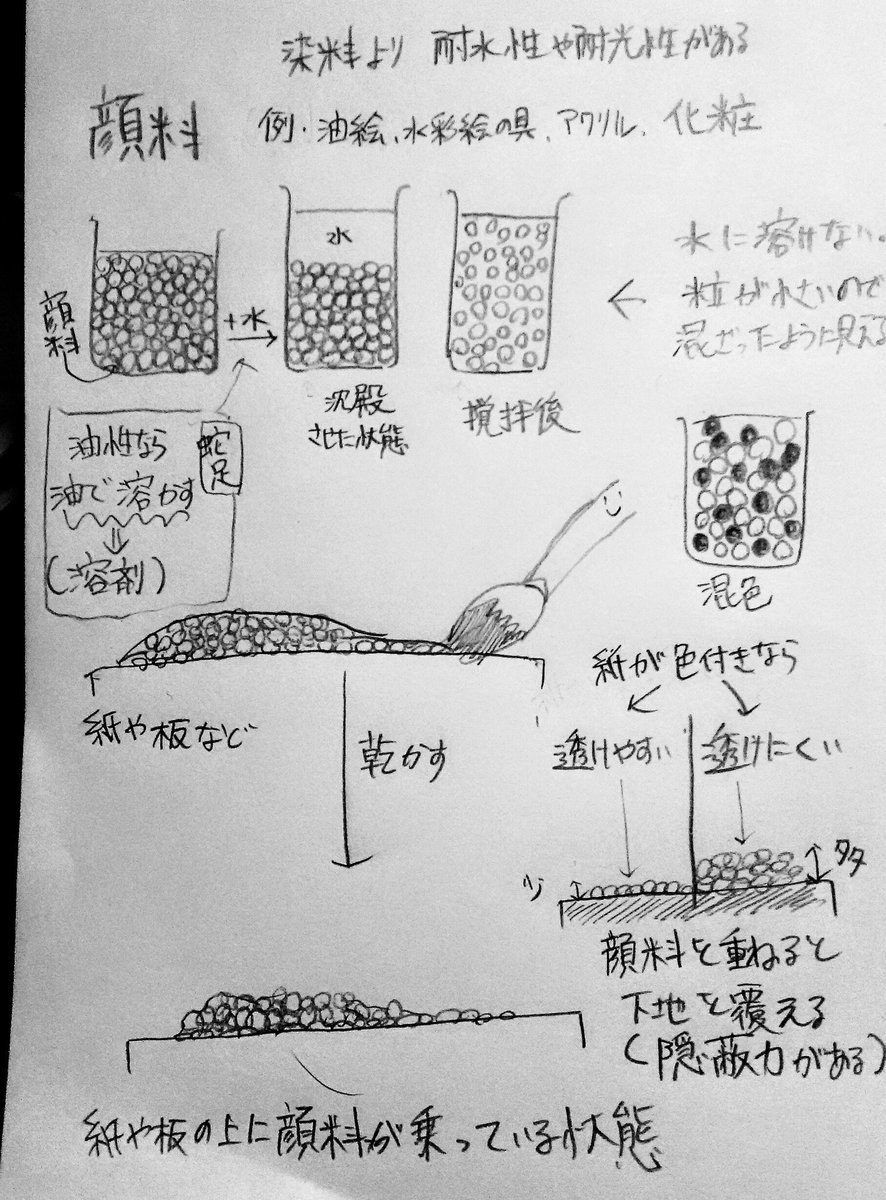 染料より 耐水性や耐光性がある
顔料
例・油絵、水彩絵の具、アクリル、化粧
水に溶けない。
粒が小さいので
混ざったように見える
←
顔料
+水
水
沈殿
させた状態
撹拌後
油性なら
油で溶かす
(溶剤)
蛇足
混色
紙や板など
乾かす
紙が色付きなら
透けやすい
透けにくい
少
多
顔料を重ねると
下地を覆える
(隠蔽力がある)
紙や板の上に顔料が乗っている状態